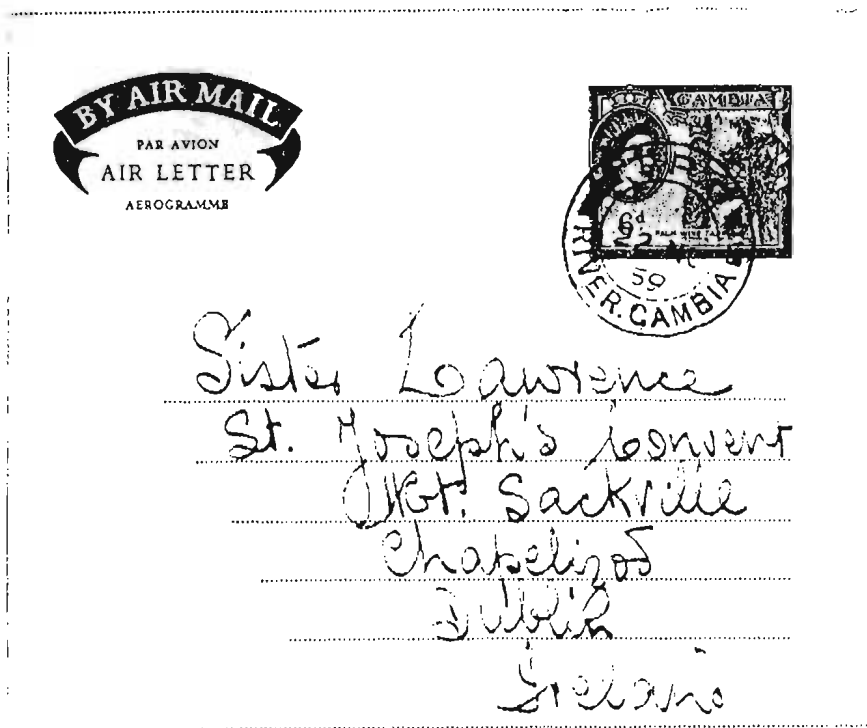 BY AIR MAIL
PAR AVION
AIR LETTER
AEROGRAMME
GAMBIA
6d
PALM WINE
22
59
RIVER. GAMBIA
Sister Lawrence
St. Joseph's Convent
Mt. Sackville
Chapelizod
Dublin
Ireland